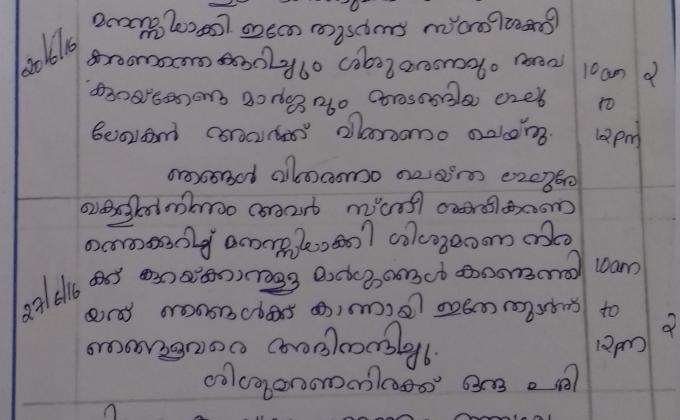 മനസ്സിലാക്കി ഇതേ തുടർന്ന് സ്ത്രീശക്തീ
20/6/16 കരണത്തെക്കുറിച്ചും ശിശുമരണവും അവ 10am 2
കുറയ്ക്കേണ്ട മാർഗ്ഗവും അടങ്ങിയ ലഘു to
ലേഖകൻ അവർക്ക് വിതരണം ചെയ്തു. 12pm
ഞങ്ങൾ വിതരണം ചെയ്ത ലഘുലേ
ഖകളിൽനിന്നും അവർ സ്ത്രീ ശക്തികരണ
ത്തെക്കുറിച്ച് മനസ്സിലാക്കി ശിശുമരണ നിര
ക്ക് കുറയ്ക്കാനുള്ള മാർഗ്ഗങ്ങൾ കണ്ടെത്തി 10am
27/6/16 യത് ഞങ്ങൾക്ക് കാണായി ഇതേതുടർന്ന് to
ഞങ്ങളവരെ അഭിനന്ദിച്ചു. 12pm 2
ശിശുമരണനിരക്ക് ഒരു പരി